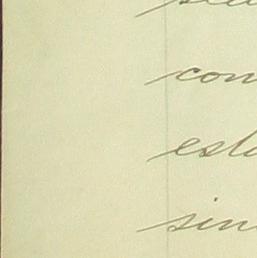 con
esta
sin